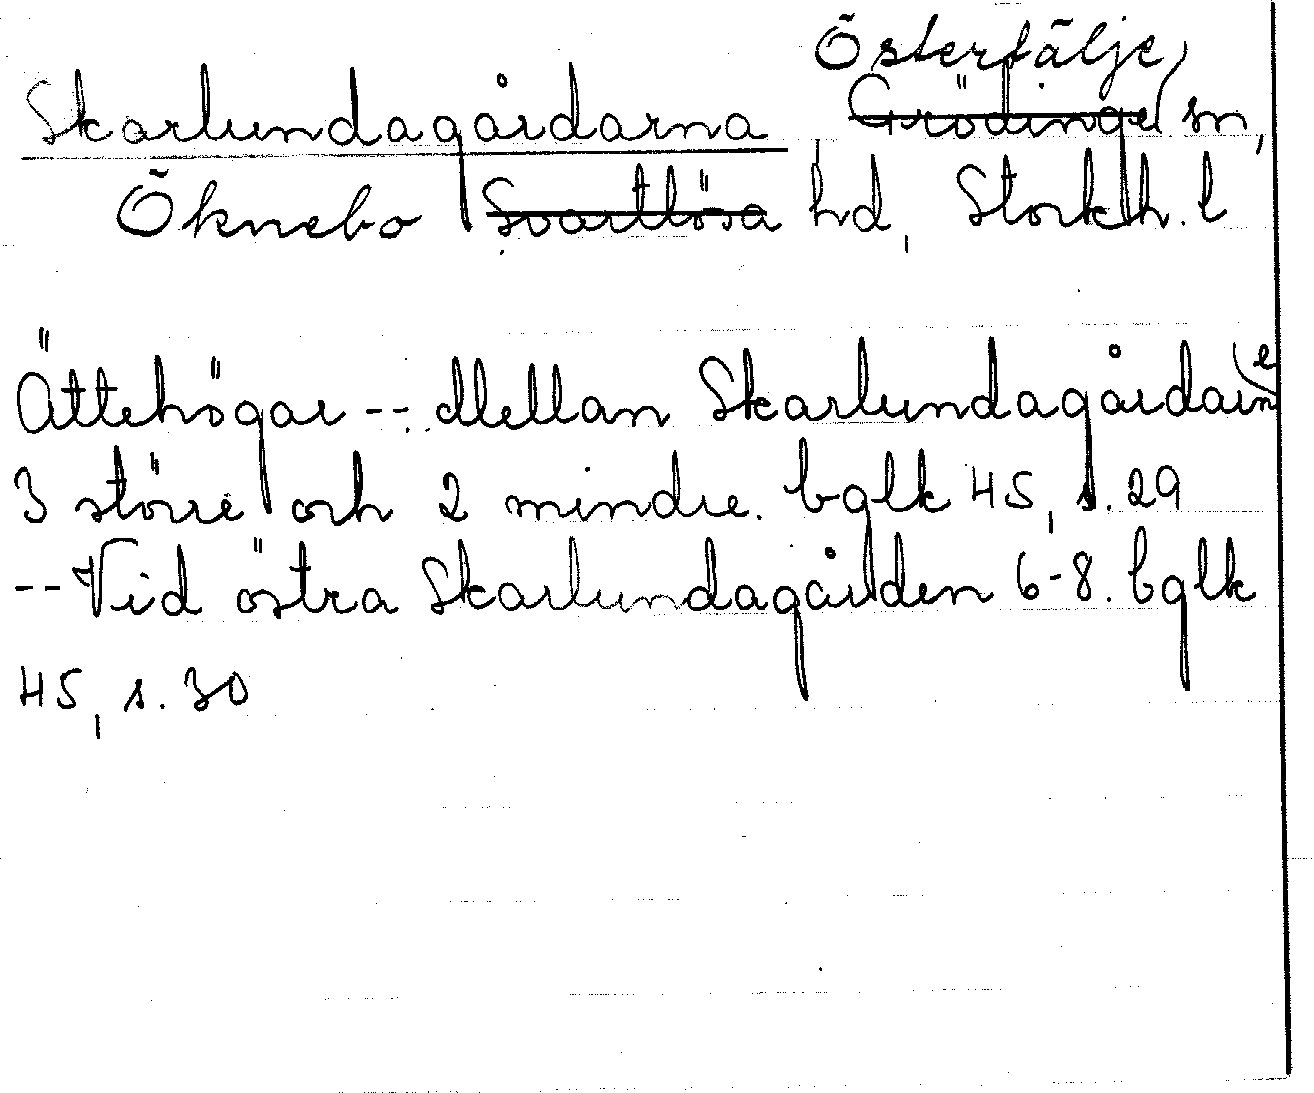 Östertälje
Skarlundagårdarna Grödinge sn,
Öknebo Svartlösa hd, Stockh. l
Ättehögar -- Mellan Skarlundagårdarne
3 större och 2 mindre. bglk 45, s. 29
-- Vid östra Skarlundagården 6-8. bglk
45, s. 30